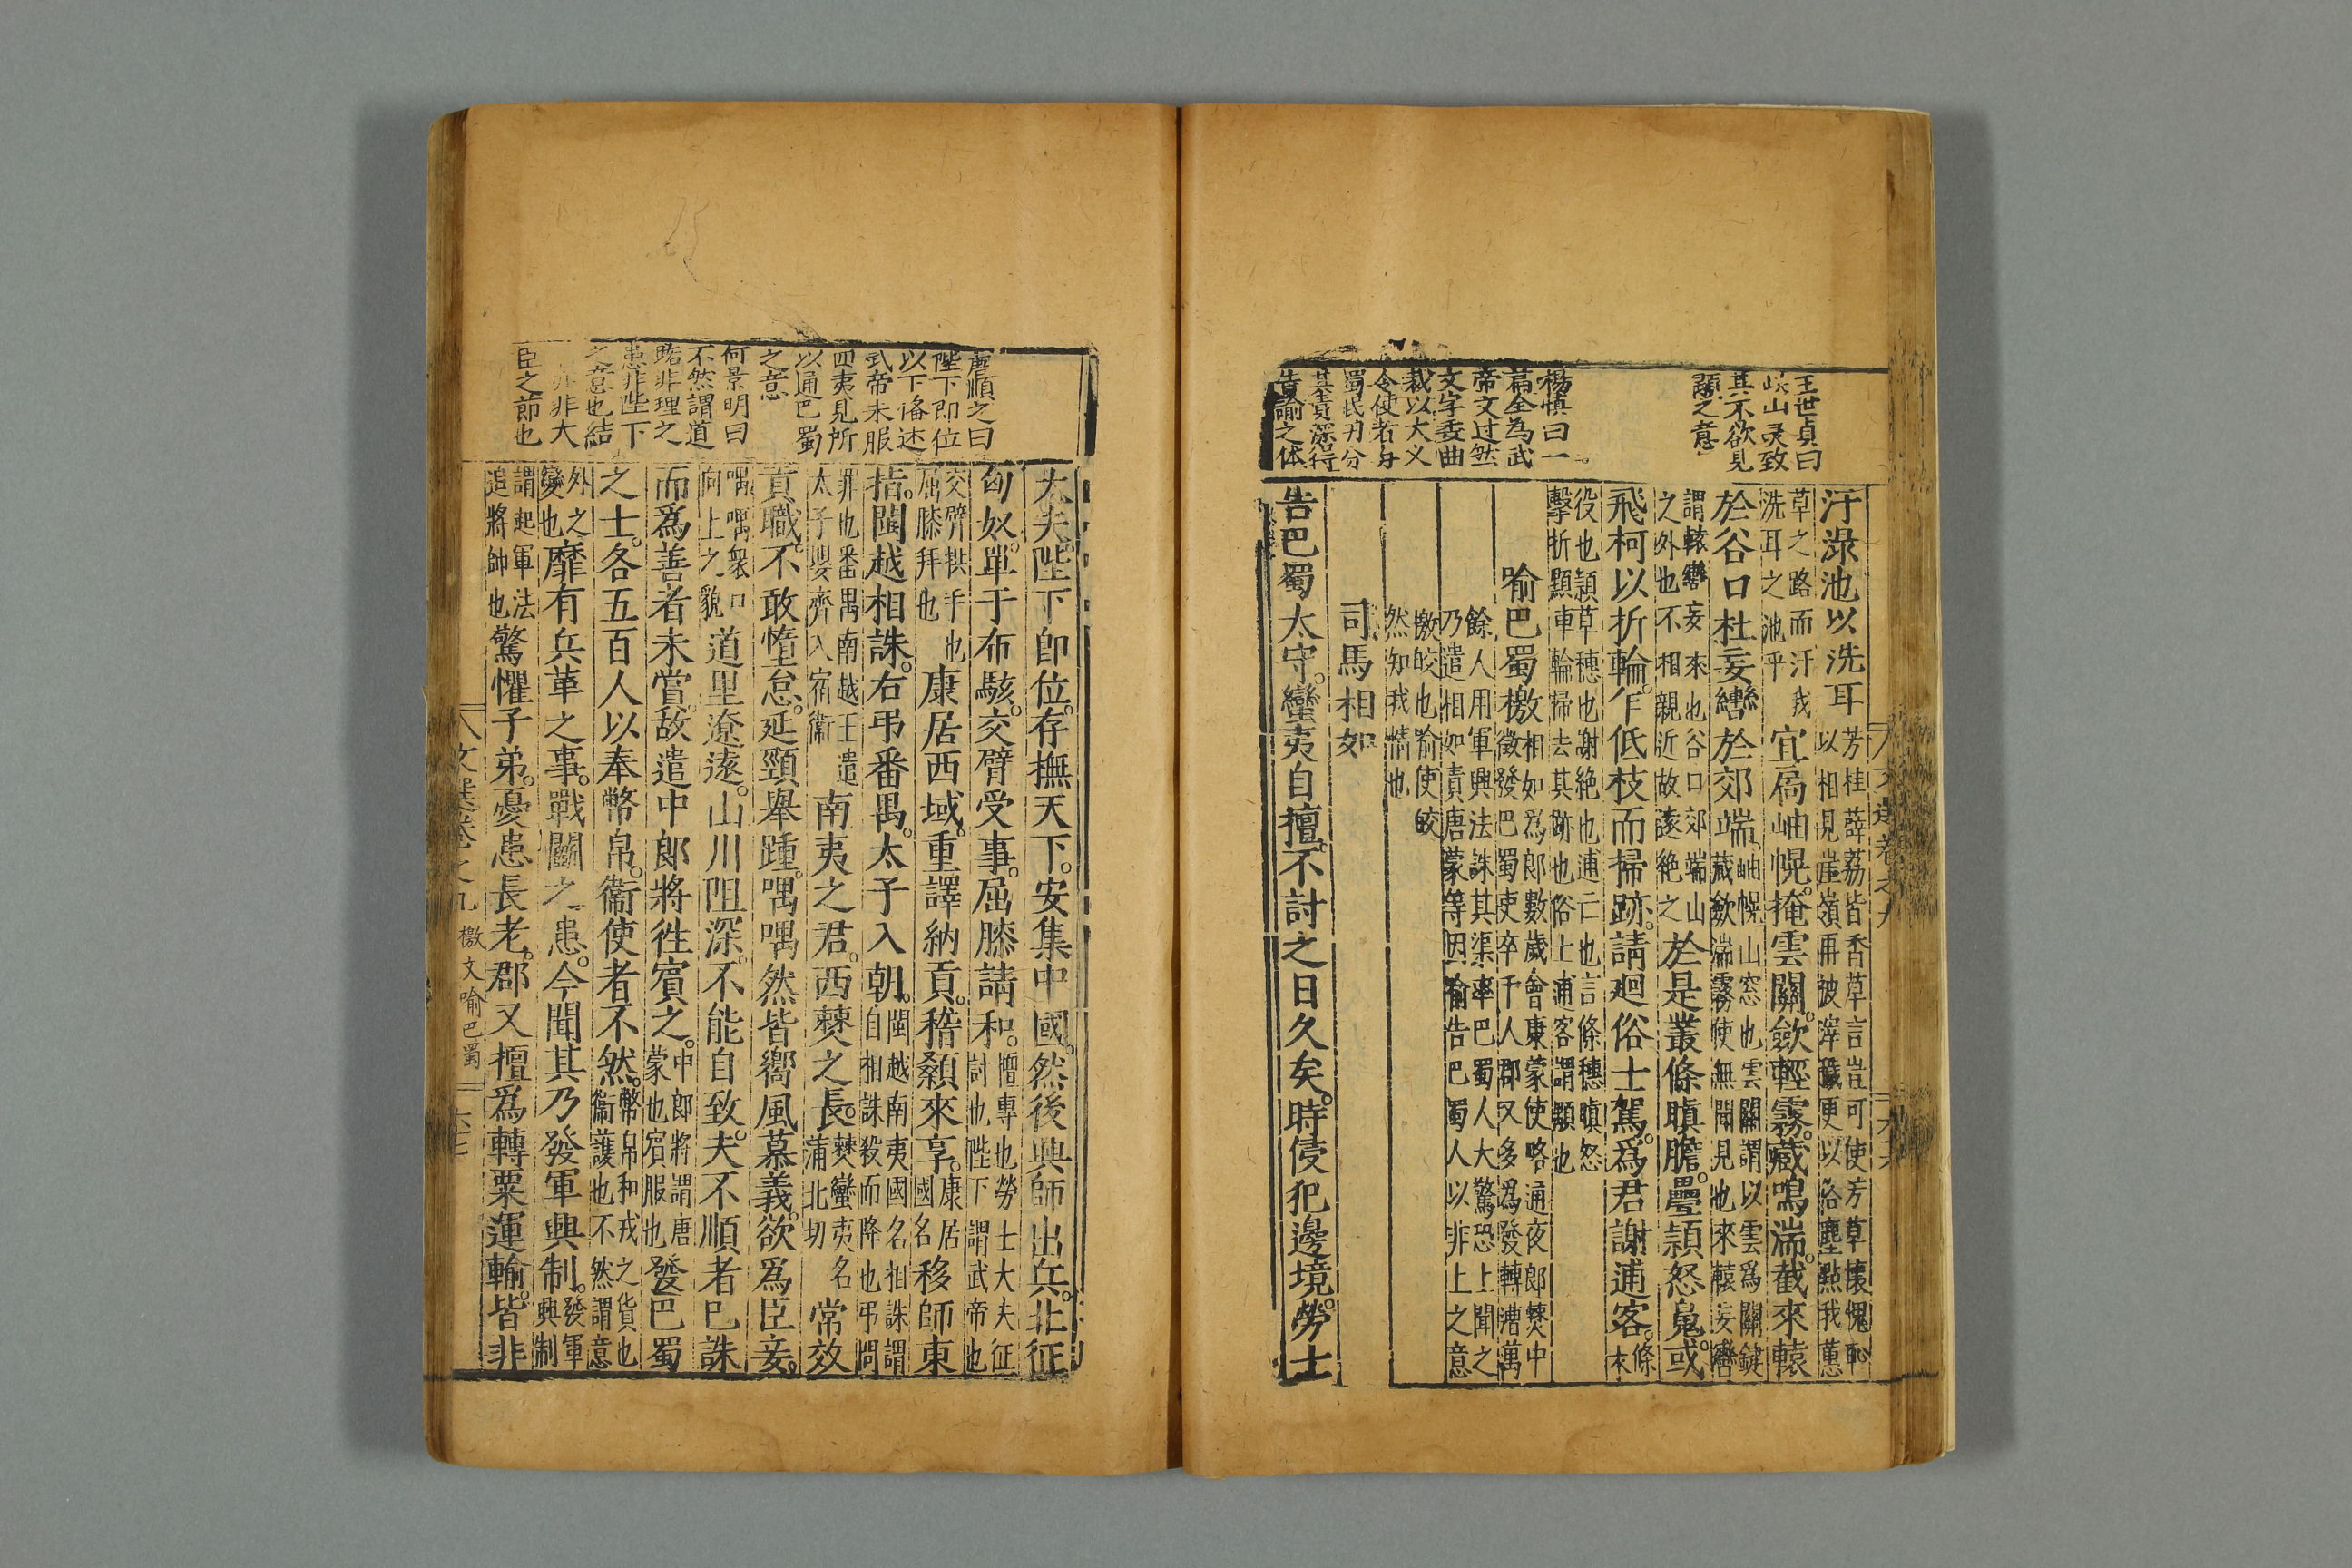 王世貞曰
峽山灵致
其不欲見
顯之意
楊慎曰一
篇全為武
帝文过然
文字委曲
裁以大义
令使者与
蜀民分
其責深得
告諭之体
汙淥池以洗耳芳桂薜荔皆香草言豈可使芳草懷愧恥
以相見崖嶺再被滓穢更以俗塵點我蕙
草之路而汙我
洗耳之池乎宜扃岫幌。掩雲關。歛輕霧。藏鳴湍。截來轅
於谷口杜妄轡於郊端。岫幌山窓也雲關謂以雲爲關鍵
藏歛湍霧使無聞見也來轅妄轡
謂轅轡妄來也谷口郊端山
之外也不相親近故遠絶之於是叢條瞋膽。疊穎怒䰟。或
飛柯以折輪。乍低枝而掃跡。請廻俗士駕。爲君謝逋客。條
木
役也穎草穗也謝絶也逋亡也言條穗瞋怒
擊折顯車輪掃去其跡也俗士逋客謂顒也
喻巴蜀檄相如爲郎數歲會唐蒙使略通夜郎僰中
徵發巴蜀使卒千人郡又多爲發轉漕萬
餘人用軍興法誅其渠率巴蜀人大驚恐上聞之
乃遣相如責唐蒙等因喻告巴蜀人以非上之意
檄皎也喻使皎
然知我情也
司馬相如
告巴蜀太守。蠻夷自擅。不討之日久矣。時侵犯邊境。勞士
文選卷之九
六六
唐順之曰
陛下即位
以下俻述
武帝未服
四夷見所
以通巴蜀
之意
何景明曰
不然謂道
路非理之
患非陛下
之意也結
亦非大
臣之節也
大夫。陛下卽位。存撫天下。安集中國。然後興師出兵。北征
匈奴。單于布駭。交臂受事。屈膝請和。擅專也勞士大夫征
討也陛下謂武帝也
交臂拱手也
屈膝拜也康居西域。重譯納貢。稽顙來享。康居
國名移師東
指。閩越相誅。右弔番禺。太子入朝。閩越南夷國名相誅謂
自相誅殺而降也弔問
罪也番禺南越王遣
太子嬰齊入宿衞南夷之君。西僰之長。僰蠻夷名
蒲北切常效
貢職。不敢惰怠。延頸舉踵。喁喁然皆嚮風慕義。欲爲臣妾。
喁喁衆口
向上之貌道里遼遠。山川阻深。不能自致。夫不順者已誅
而爲善者未賞。故遣中郎將徃賓之。中郎將謂唐
蒙也賓服也發巴蜀
之士。各五百人以奉幣帛。衞使者不然。幣帛和戎之貨也
衞護也不然謂意
外之
變也靡有兵革之事。戰鬭之患。今聞其乃發軍興制。發軍
興制
謂起軍法
追將帥也驚懼子弟。憂患長老。郡又擅爲轉粟運輸。皆非
文選卷之九 檄文喻巴蜀 六七